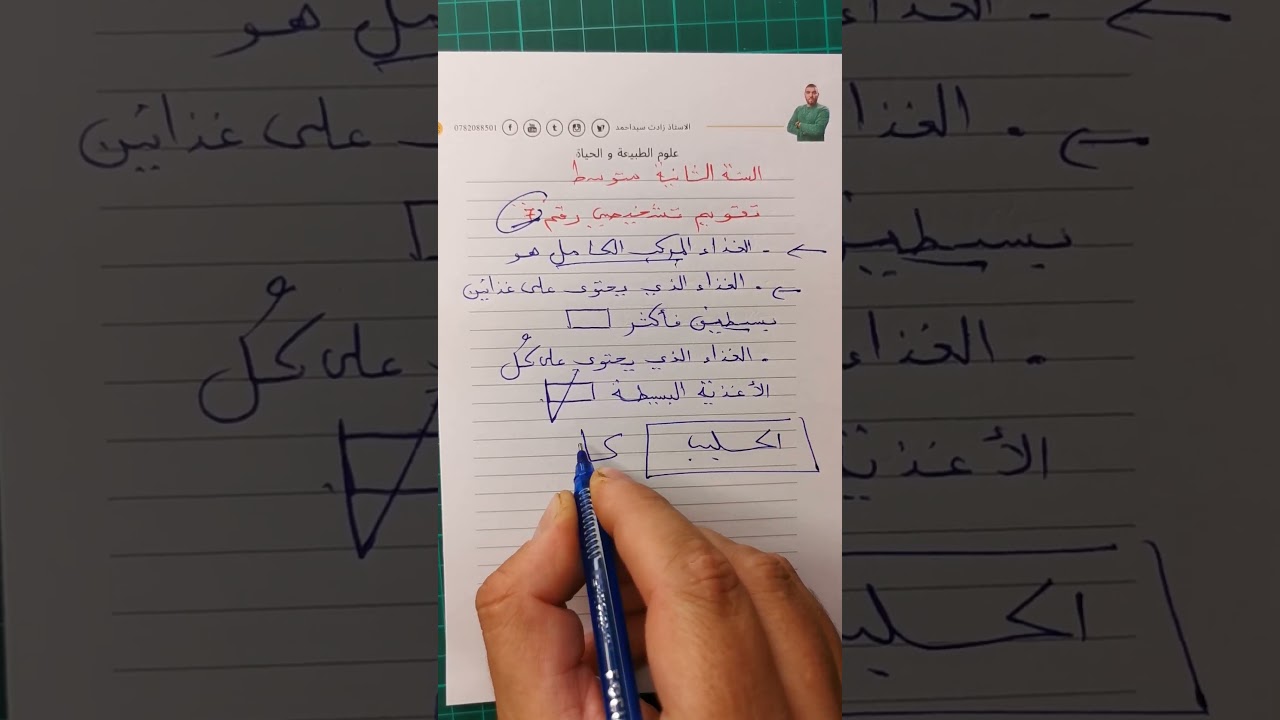 الاستاذ زادت سيداحمد 0782088501
علوم الطبيعة و الحياة
السنة الثانية متوسط
تقويم تشخيصي رقم 7
- الغذاء المركب الكامل هو
. الغذاء الذي يحتوي على غذائين
بسيطين فأكثر
. الغذاء الذي يحتوي على كُل
الأغذية البسيطة
الحليب